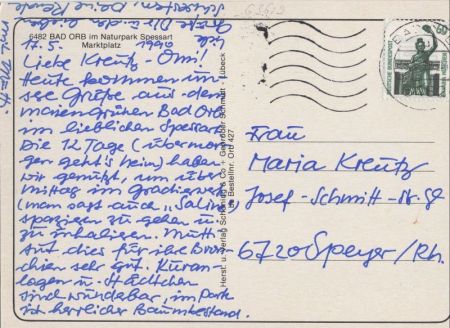 6482 BAD ORB im Naturpark Spessart
Marktplatz
17.5. 1990
Liebe Kreutz-Omi!
Heute kommen un-
sere Grüße aus dem
maiengrünen Bad Orb
im lieblichen Spessart.
Die 12 Tage (übermor-
gen geht's heim) haben
wir genutzt, um über
mittag im Gradierwerk
(man sagt auch "Saline")
spazieren zu gehen u.
zu inhalieren. Mutti
tut dies für ihre Bron-
chien sehr gut. Kuran-
lagen u. Städtchen
sind wunderbar, im Park
ist herrlicher Baumbestand.
Liebe
Grüße Dir u. den
Deine
u. Verlag
Lübeck
Bestellnr. Orb 427
DEUTSCHE BUNDESPOST
60
Frau
Maria Kreutz
Josef-Schmitt-Str.
6720 Speyer/Rh.